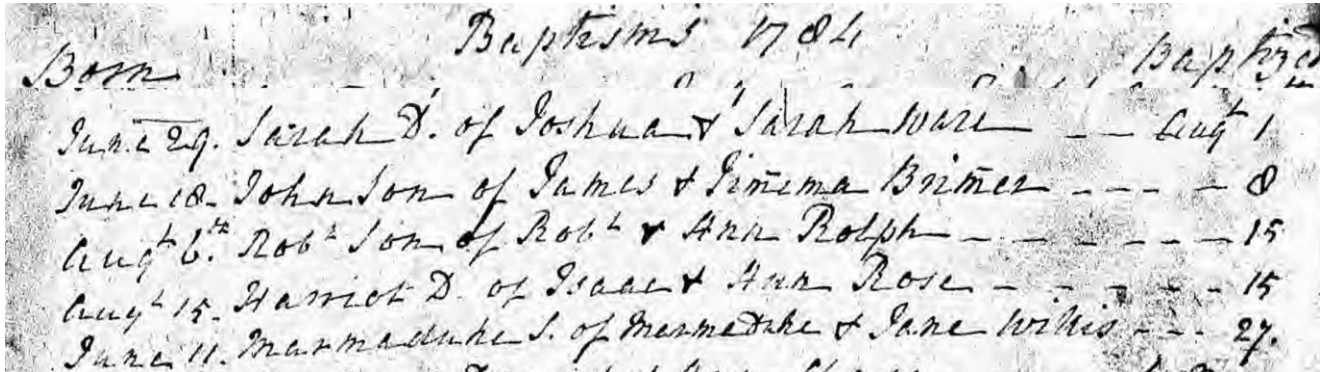 Baptisms 1784
Born Baptized
June 29. Sarah D. of Joshua & Sarah Ware — — Augt 1
June 18. John Son of James & Jimima Brimer - - - - 8
Augt 6th Robt Son of Robt & Ann Rolph - - - - - - - 15
Augt 15. Harriot D. of Isaac & Ann Rose - - - - - 15
June 11. Marmaduke S. of Marmaduke & Jane Willis - - - 27.